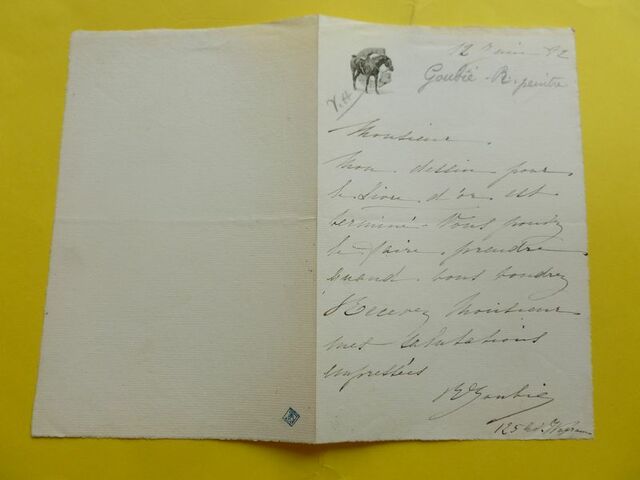 Goubié. R. peintre
V. H
Monsieur.
Mon dessin pour
le Livre d'or est
terminé. Vous pouvez
le faire prendre
quand vous voudrez
Recevez Monsieur
mes salutations
empressées
R Goubie
125 Bd